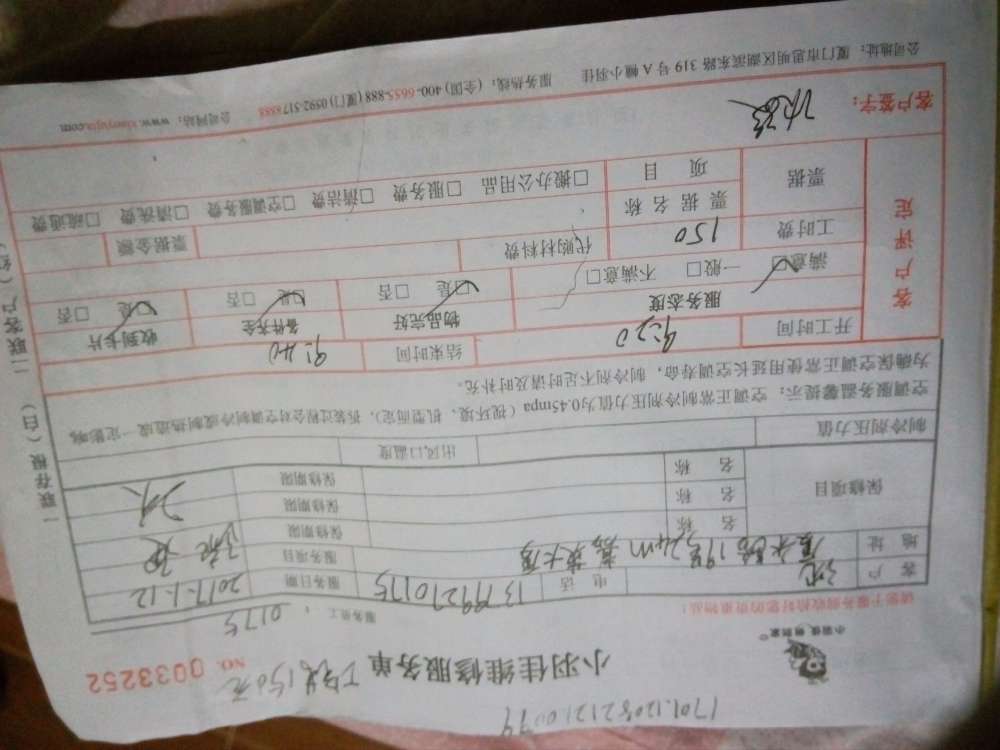 1701120821210079
小羽佳维修服务单
NO. 0033252
150元
小羽佳 明到家
请您于服务前收拾好您的贵重物品!
服务员工: 0175
客户
电话 13799270175
服务日期 2017-1-12
地址
服务项目 疏通
保修项目
名称
保修期限
名称
保修期限
名称
保修期限
制冷剂压力值
出风口温度
空调服务温馨提示:空调正常制冷剂压力值为0.45mpa(视环境、机型而定),拆装过程会对空调制冷或制热造成一定影响,
为确保空调正常使用延长空调寿命,制冷剂不足时请及时补充。
开工时间 9:20
结束时间 9:40
客户评定
服务态度
物品完好
备件齐全
收到卡片
满意□ 一般□ 不满意□
□是 □否
□是 □否
□是 □否
工时费 150
代购材料费
票据金额
票据
票据名称
项目
□搬办公用品 □服务费 □清洁费 □空调服务费 □清洗费 □疏通费
客户签字:
公司地址:厦门市思明区湖滨东路319号A幢小羽佳 服务热线:(全国)400-6655-888(厦门)0592-5178888 公司网站:www.xiaoyujia.com
一联存根(白) 二联客户(红)